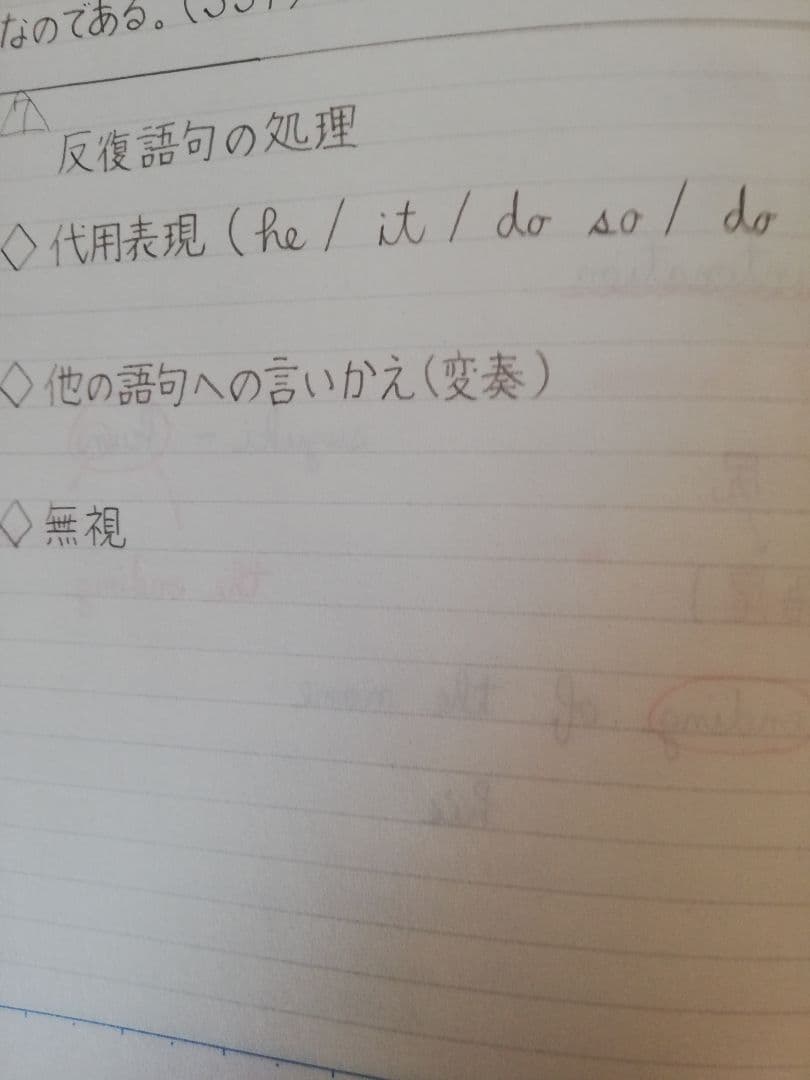 なのである。(
7
反復語句の処理
◇代用表現(he / it / do so / do
◇他の語句への言いかえ(変奏)
◇無視